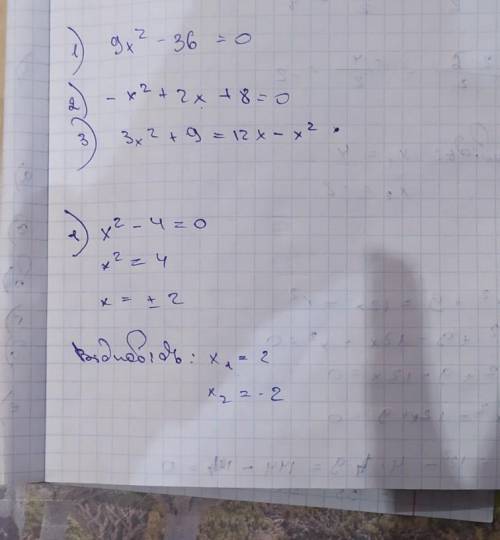 1) 9x² - 36 = 0
2) - x² + 2x + 8 = 0
3) 3x² + 9 = 12x - x²
1) x² - 4 = 0
x² = 4
x = ± 2
Відповідь: x₁ = 2
x₂ = - 2